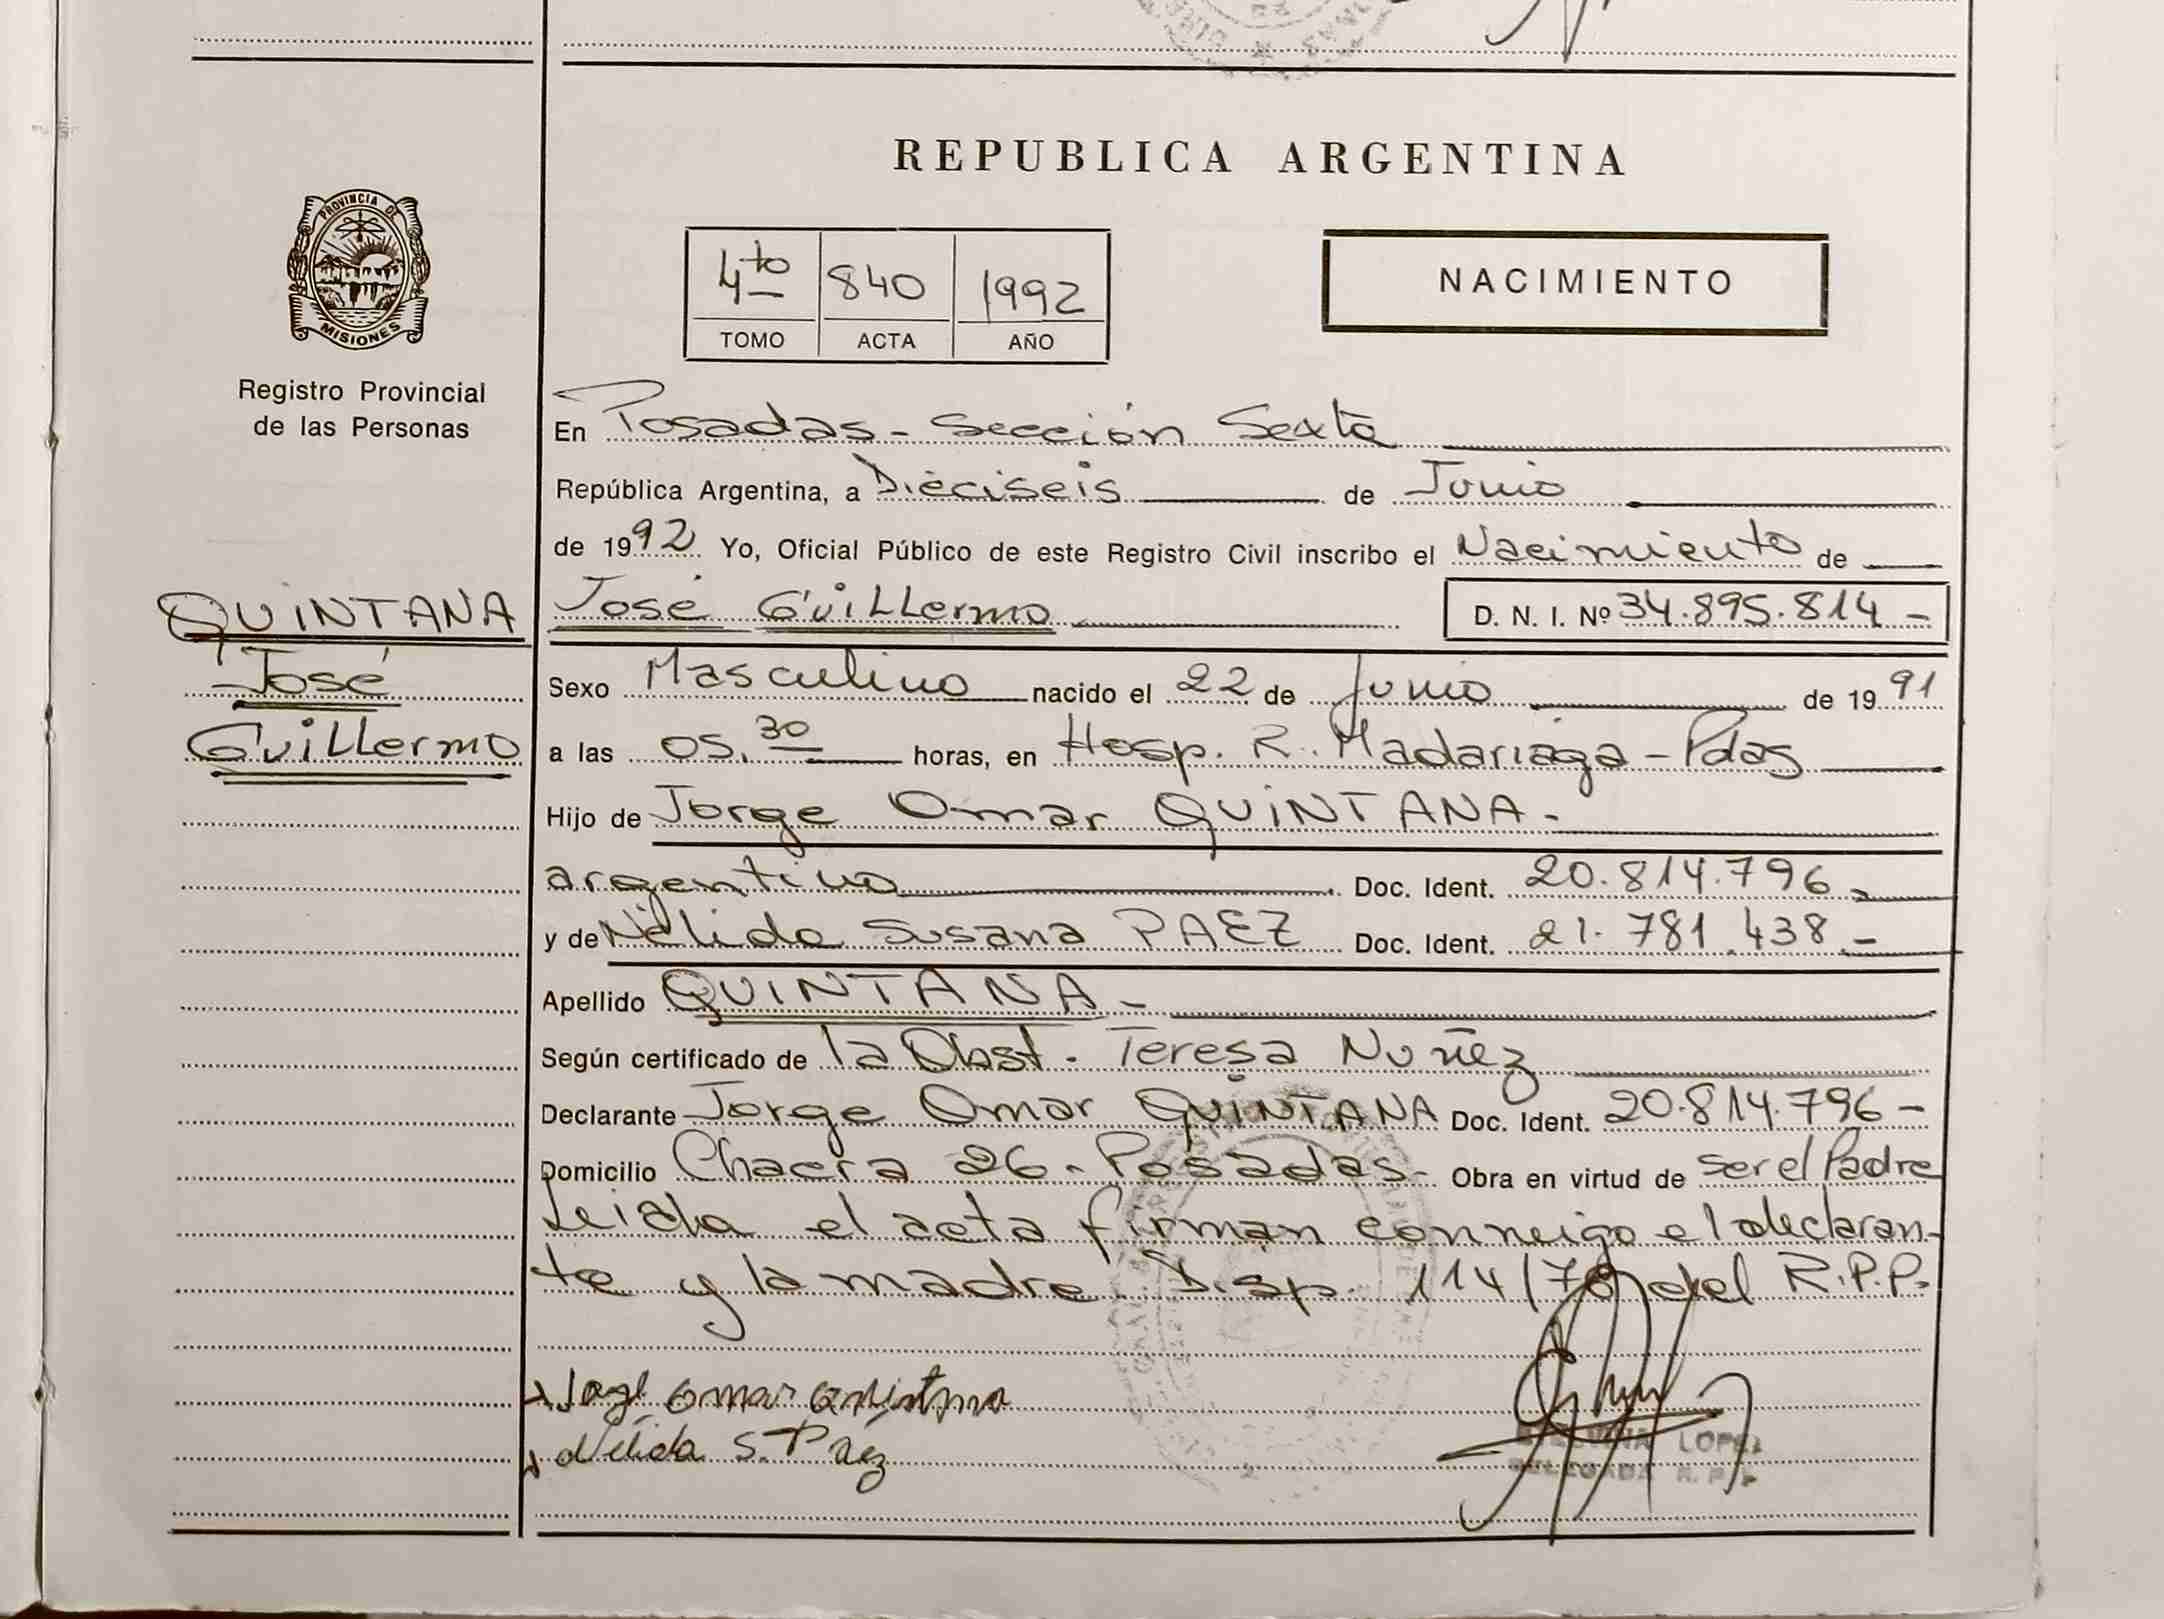 REPUBLICA ARGENTINA
PROVINCIA DE
MISIONES
Registro Provincial
de las Personas
4to 840 1992
TOMO ACTA AÑO
NACIMIENTO
En Posadas - Sección Sexta
República Argentina, a Dieciseis de Junio
de 1992 Yo, Oficial Público de este Registro Civil inscribo el Nacimiento de
QUINTANA
José
Guillermo
José Guillermo D. N. I. Nº 34.895.814 -
Sexo Masculino nacido el 22 de Junio de 1991
a las 05,30 horas, en Hosp. R. Madariaga - Pdas
Hijo de Jorge Omar QUINTANA -
argentino Doc. Ident. 20.814.796 -
y de Nélida Susana PAEZ Doc. Ident. 21.781.438 -
Apellido QUINTANA -
Según certificado de la Obst. Teresa Nuñez
Declarante Jorge Omar QUINTANA Doc. Ident. 20.814.796 -
Domicilio Chacra 26 - Posadas - Obra en virtud de ser el Padre
Leida el acta firman conmigo el declaran-
te y la madre. Disp. 114/78 del R.P.P.
Jorge Omar Quintana
Nélida S. Paez
LOPEZ